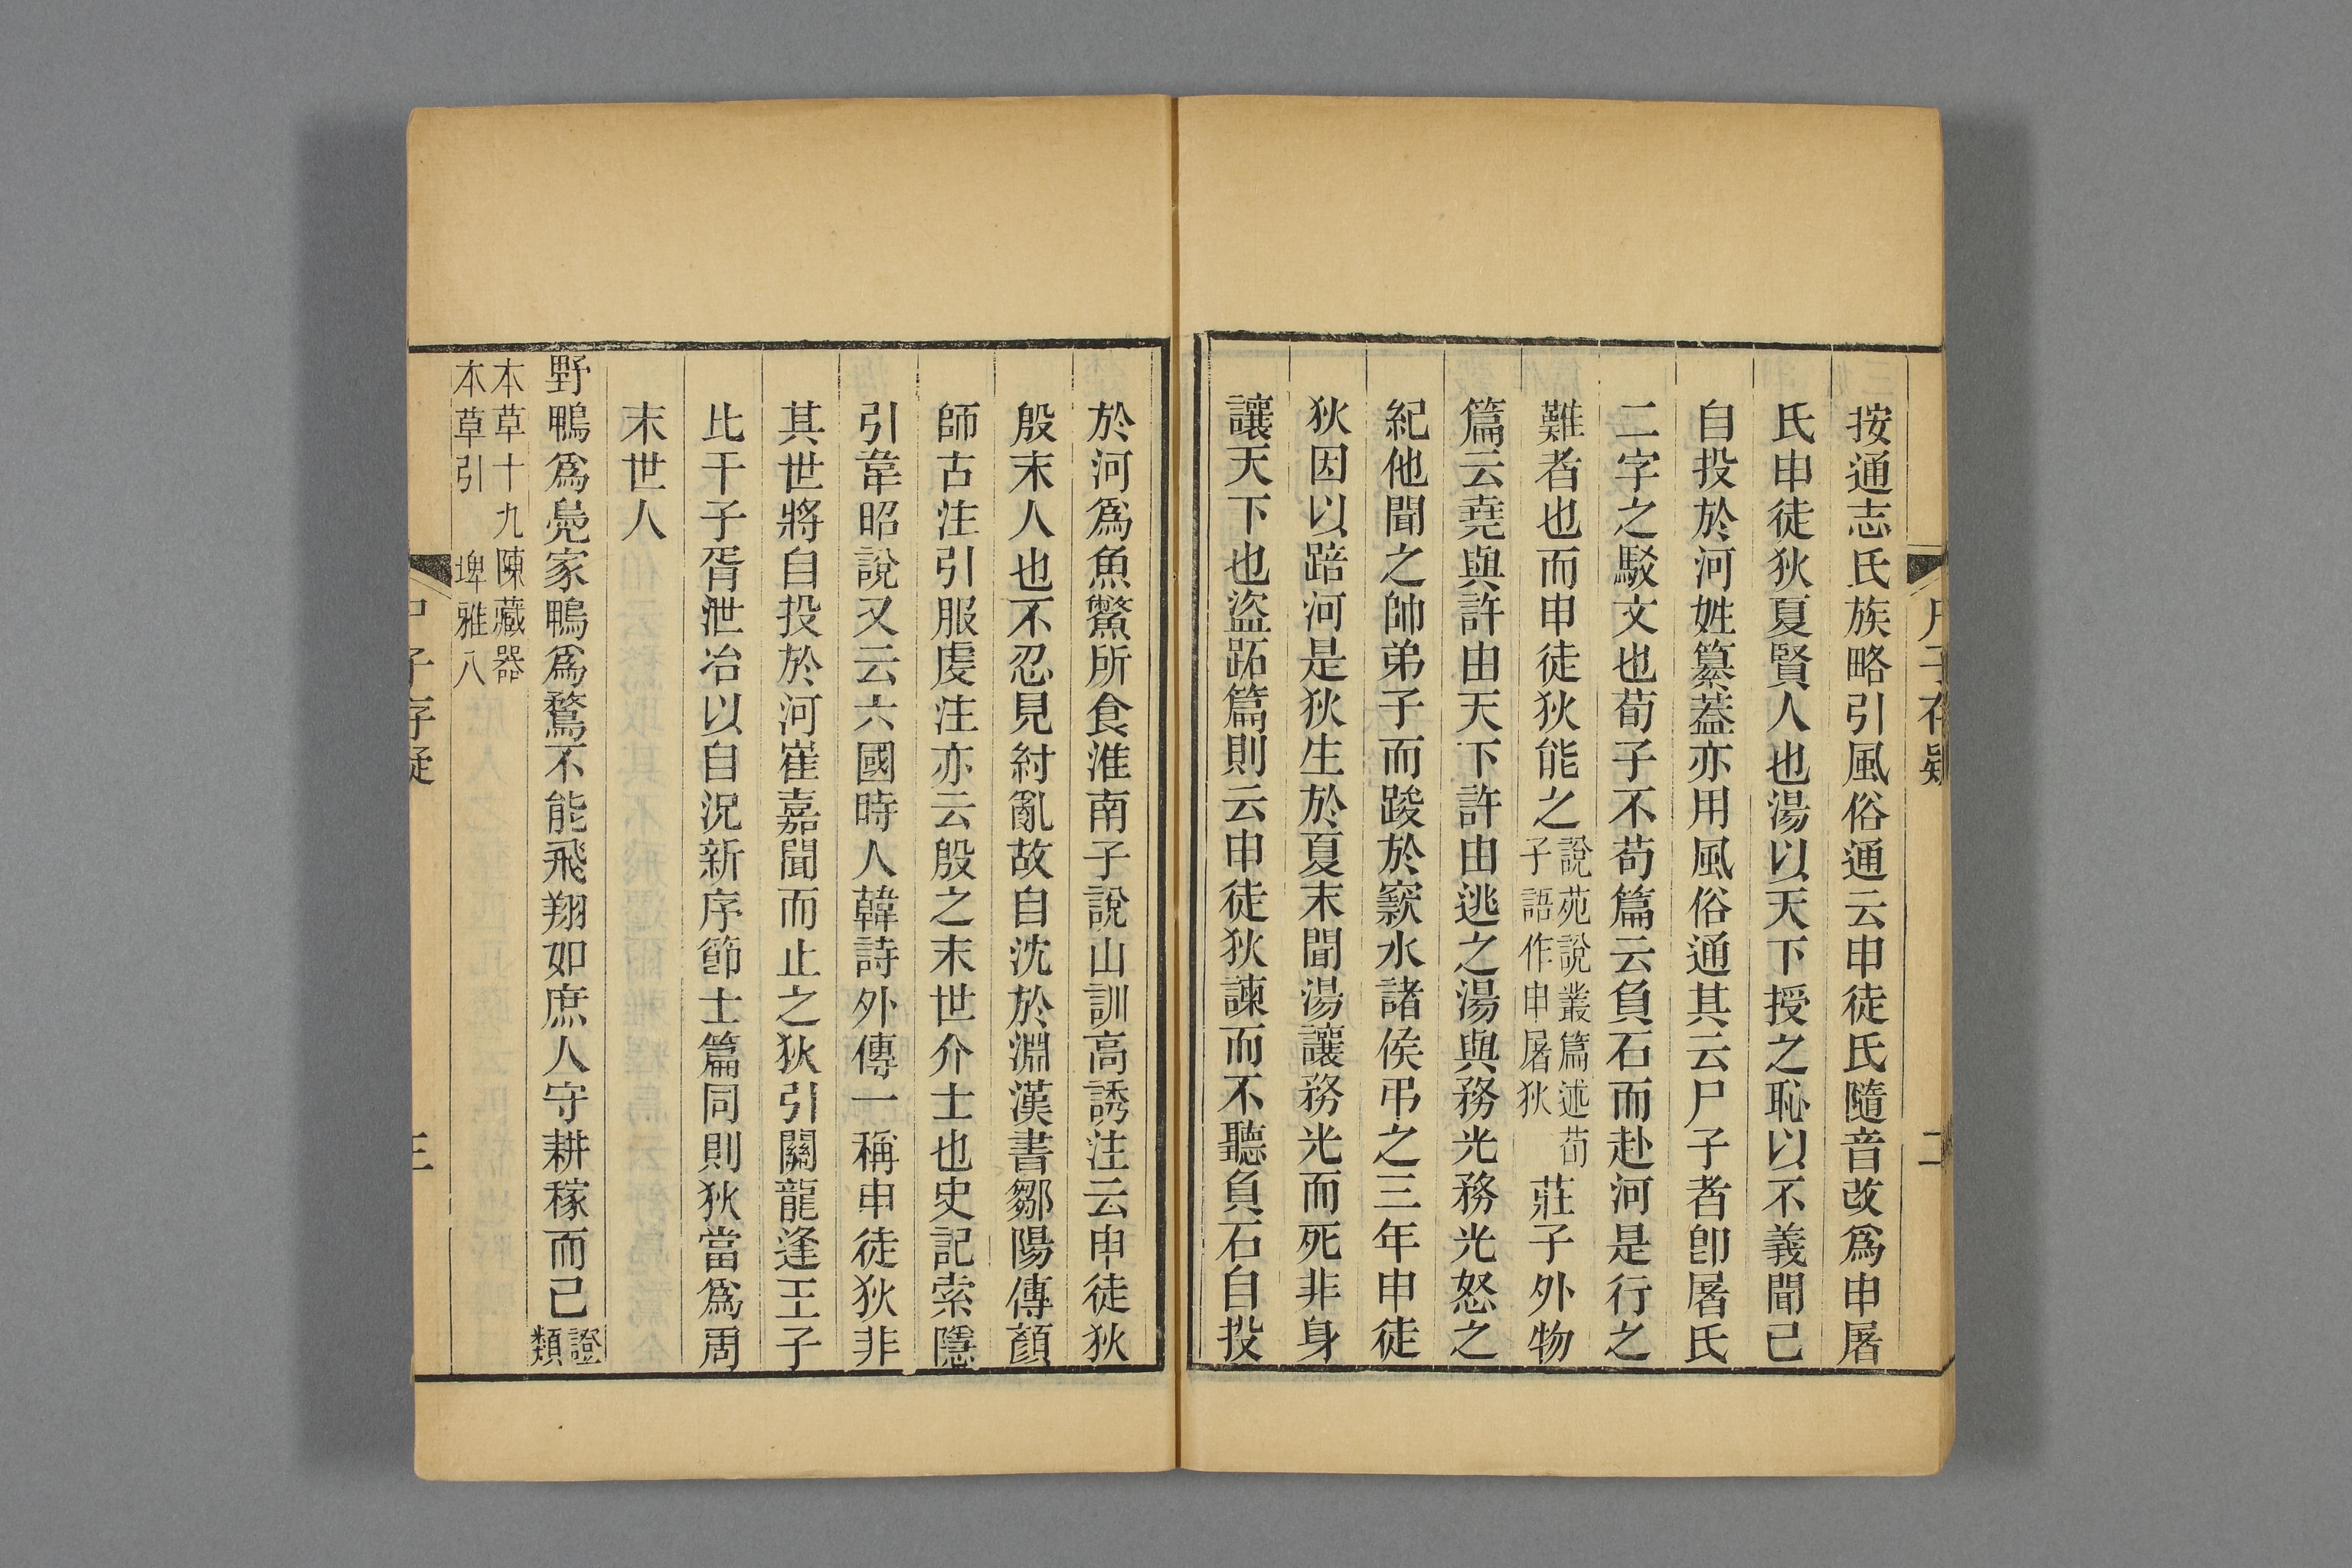 按通志氏族略引風俗通云申徒氏隨音改爲申屠
氏申徒狄夏賢人也湯以天下授之恥以不義聞己
自投於河姓纂葢亦用風俗通其云尸子者卽屠氏
二字之駁文也荀子不苟篇云負石而赴河是行之
難者也而申徒狄能之說苑說叢篇述荀子語作申屠狄莊子外物
篇云堯與許由天下許由逃之湯與務光務光怒之
紀他聞之帥弟子而踆於窾水諸侯弔之三年申徒
狄因以踣河是狄生於夏末聞湯讓務光而死非身
讓天下也盜跖篇則云申徒狄諫而不聽負石自投
於河爲魚鱉所食淮南子說山訓高誘注云申徒狄
殷末人也不忍見紂亂故自沈於淵漢書鄒陽傳顏
師古注引服虔注亦云殷之末世介士也史記索隱
引韋昭說又云六國時人韓詩外傳一稱申徒狄非
其世將自投於河崔嘉聞而止之狄引關龍逢王子
比干子胥泄冶以自況新序節士篇同則狄當爲周
末世人
野鴨爲鳧家鴨爲鶩不能飛翔如庶人守耕稼而已證類
本草十九陳藏器本草引 埤雅八
尸子存疑 二
子存疑 三